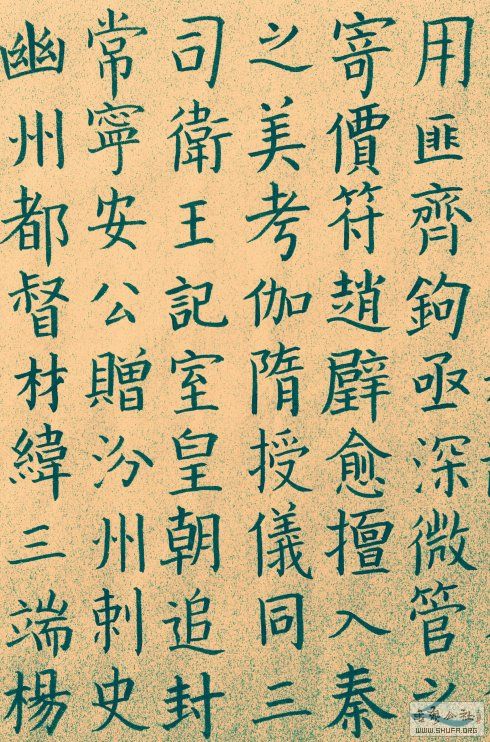 用匪齊鉤亟深微管之
寄價符趙璧愈擅入秦
之美考伽隋授儀同三
司衛王記室皇朝追封
常寧安公贈汾州刺史
幽州都督材緯三端楊
WWW.SHUFA.ORG